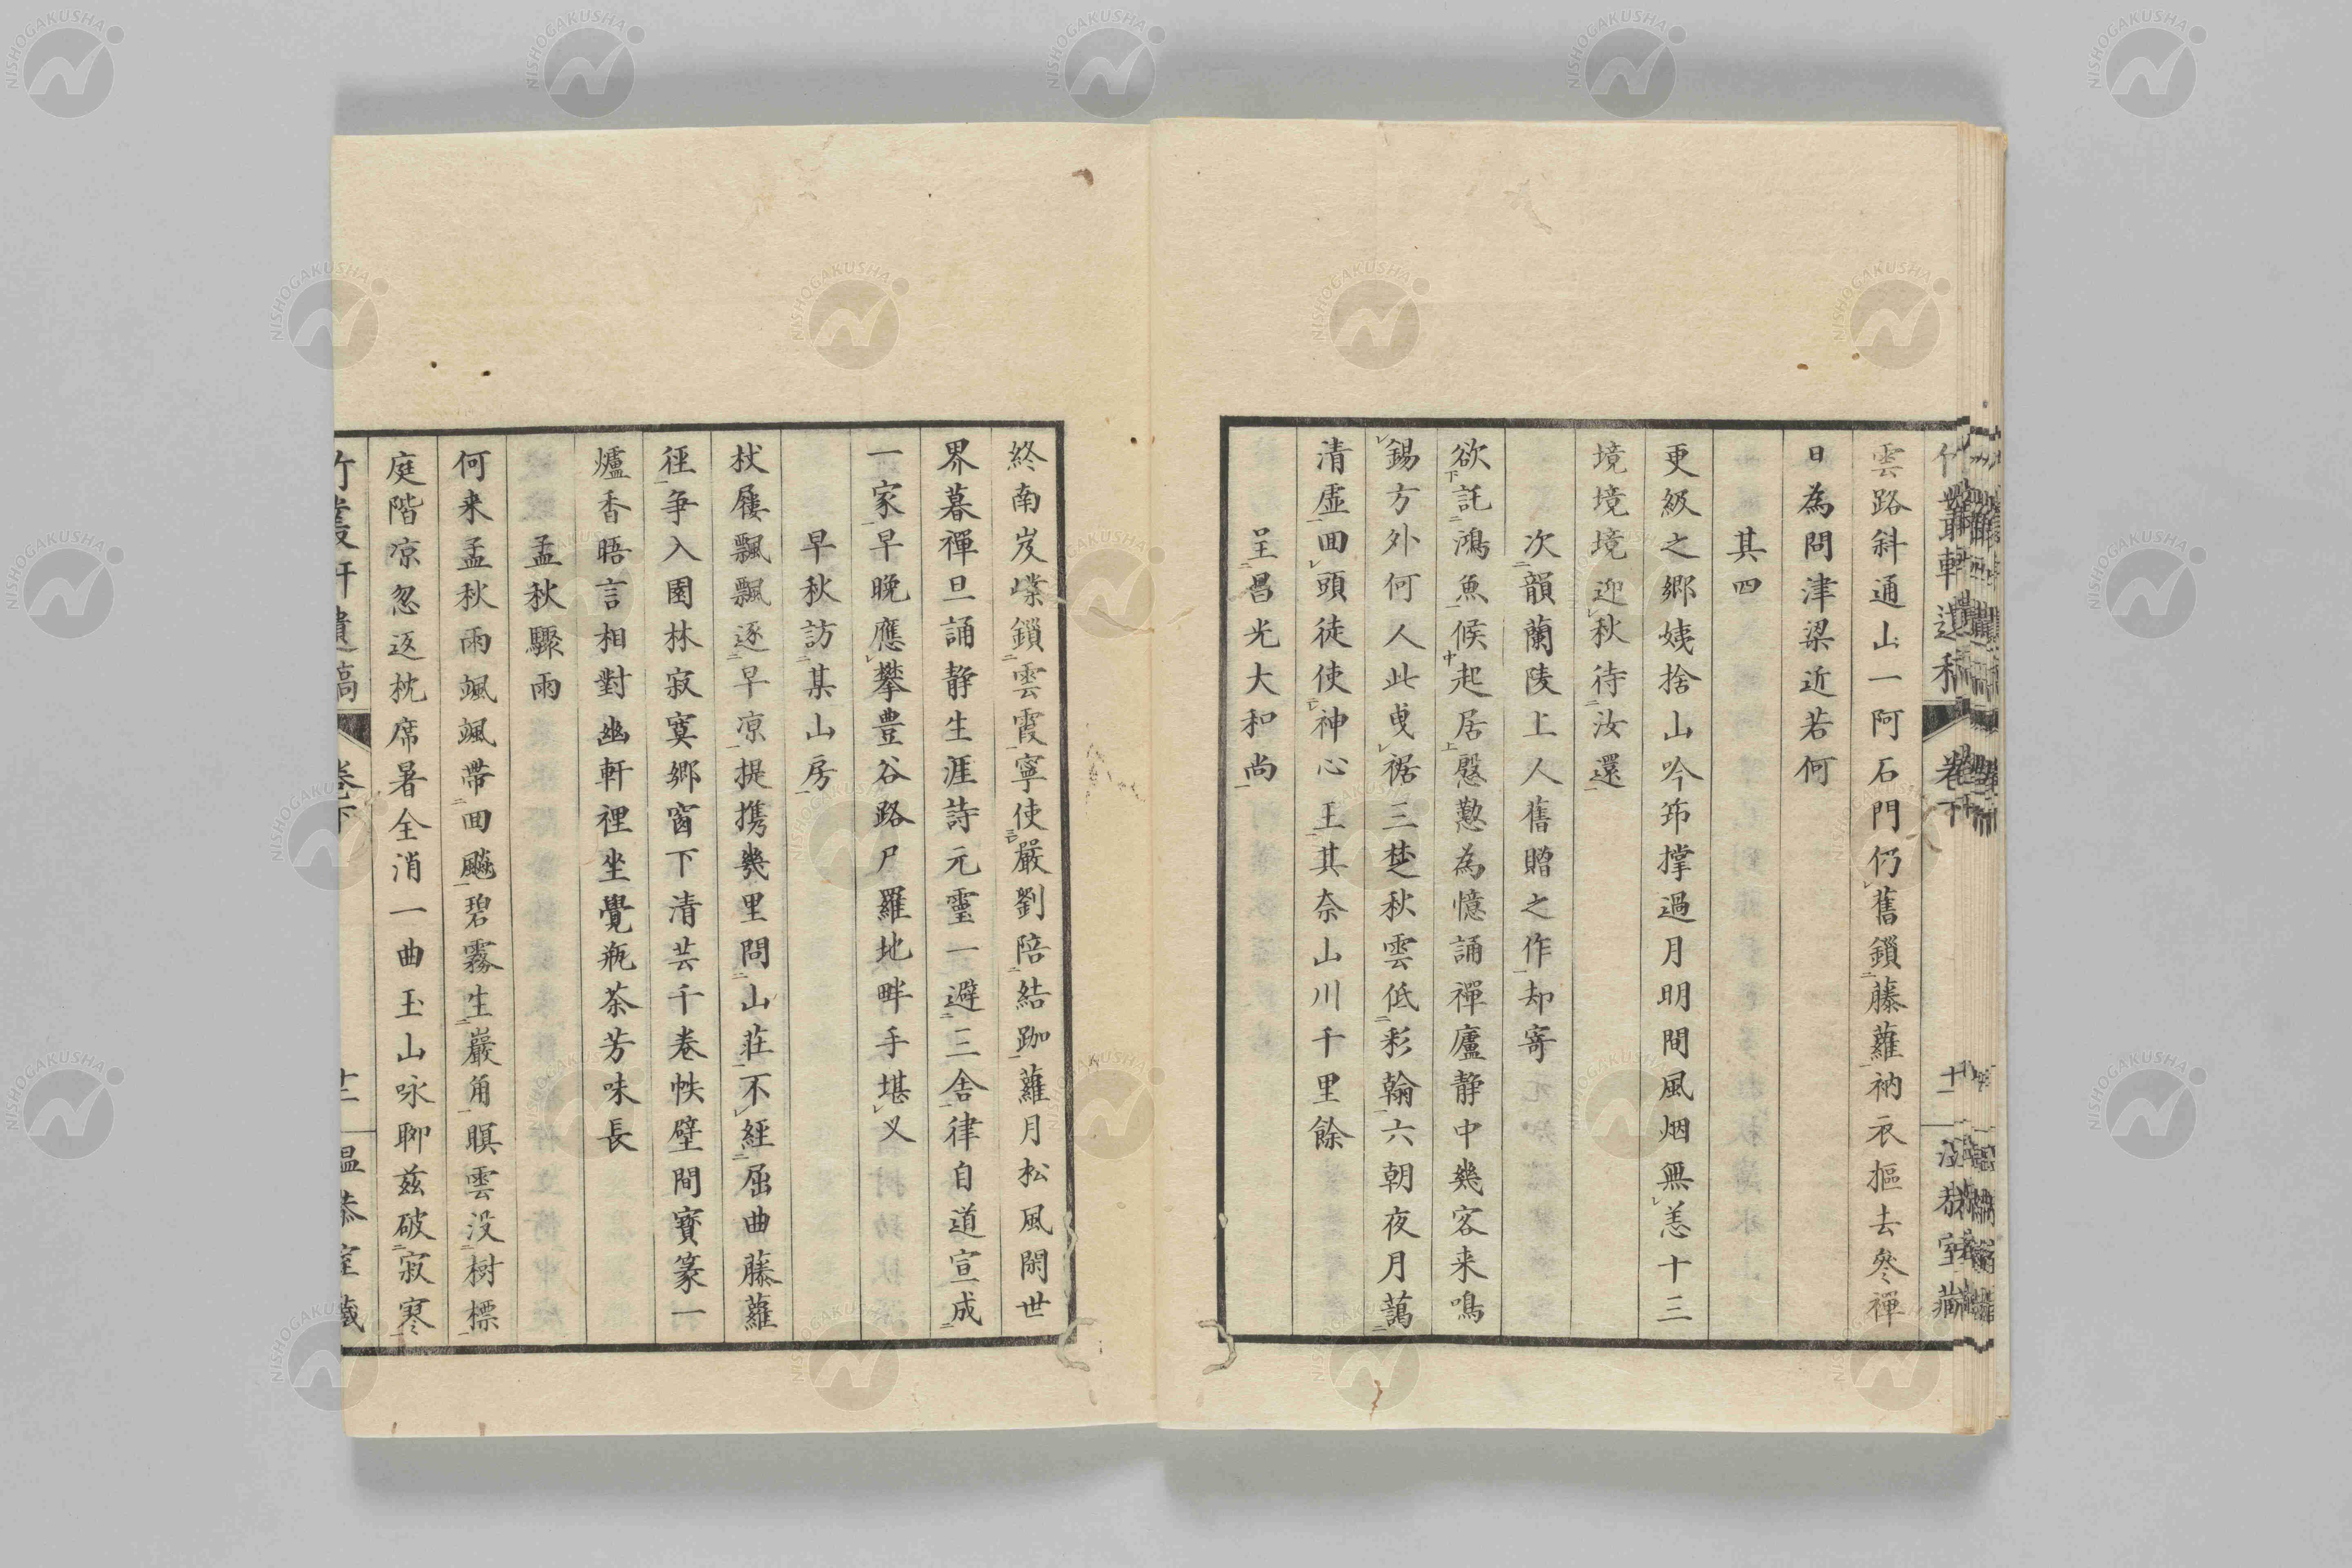 雲路斜通山一阿石門仍舊鎖藤蘿衲衣摳去參禪
日為問津梁近若何
其四
更級之鄉姨捨山吟笻撑過月明間風烟無恙十三
境境境境迎秋待汝還
次韻蘭陵上人舊贈之作却寄
欲託鴻魚候起居慇懃為憶誦禪廬静中幾客来鳴
錫方外何人此曳裾三楚秋雲低彩翰六朝夜月藹
清虛囬頭徒使神心王其奈山川千里餘
呈昌光大和尚
終南岌嶫鎖雲霞寧使嚴劉陪結跏蘿月松風閑世
界暮禪旦誦静生涯詩元靈一避三舎律自道宣成
一家早晚應攀豊谷路尸羅地畔手堪叉
早秋訪某山房
杖屨飄飄逐早凉提携幾里問山莊不經屈曲藤蘿
徑爭入園林寂寞鄉窗下清芸千巻帙壁間寶篆一
爐香晤言相對幽軒裡坐覺瓶茶芳味長
孟秋驟雨
何来孟秋雨颯颯帶囬飈碧霧生巖角暝雲没樹標
庭階凉忽返枕席暑全消一曲玉山咏聊茲破寂寒
竹叢軒遺稿 巻下 十二 温恭室藏